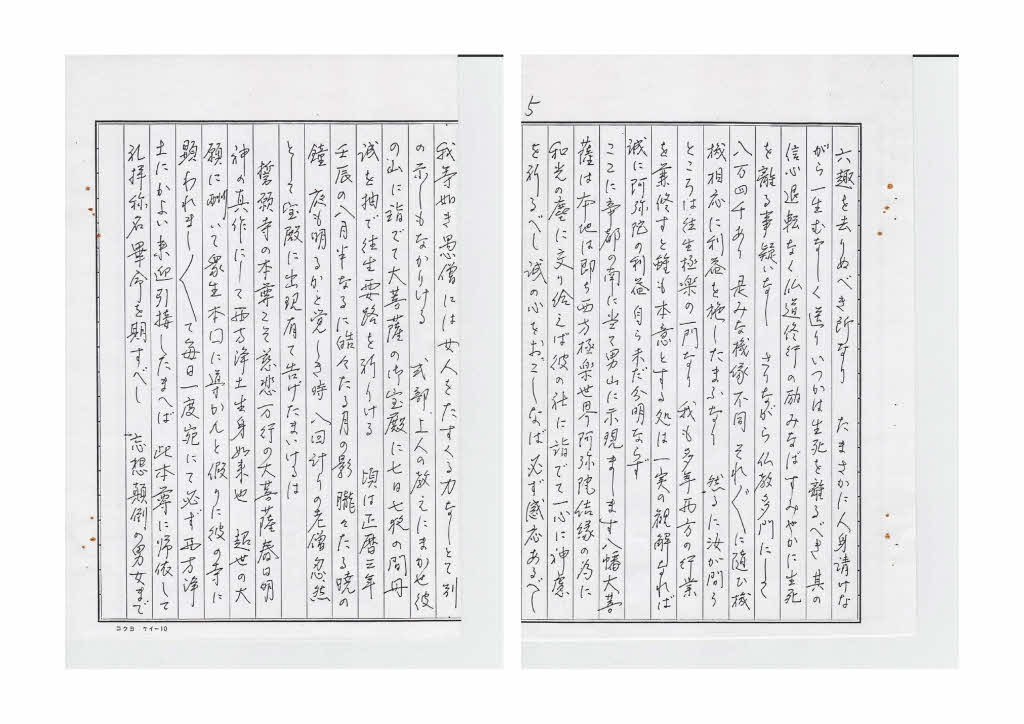 5
六趣を去りぬべき所なり　たまさかに人身請けな
がら一生むなしく送りいつかは生死を離るべき　其の
信心退転なく仏道修行の励みなばすみやかに生死
を離る事疑いなし　さりながら仏教多門にして
八万四千あり　是みな機縁不同　それ〲に随ひ機
機相応に利益を施したまふなり　然るに汝が問う
ところは往生極楽の一門なり　我も多年西方の行業
を兼修すと雖も本意とする処は一実の観解なれば
誠に阿弥陀の利益自ら未だ分明ならず
ここに帝都の南に当て男山に示現まします八幡大菩
薩は本地は即ち西方極楽世界阿弥陀結縁の為に
和光の塵に交り給えば彼の社に詣でて一心に神慮
を祈るべし　誠の心をおこしなば必ず感応あるべし
我等如き愚僧には女人をたすくる力なしとて別
の示しもなかりける　式部、上人の教えにまかせ彼
の山に詣でて大菩薩の御宝殿に七日七晩の間丹
誠を抽で往生要路を祈りける　頃は正暦三年
壬辰の八月半なるに皓々たる月の影　朧々たる暁の
鐘　夜も明るかと覚しき時　八旬計りの老僧忽然
として宝殿に出現有て告げたまいけるは
誓願寺の本尊こそ慈悲万行の大菩薩春日明
神の真作にして西方浄土生身如来也　超世の大
願に酬いて衆生本口に導かんと假りに彼の寺に
顕われまし〱て毎日一度宛にて必ず西方浄
土にかよい来迎引接したまへば　此本尊に帰依して
礼拝称名畢命を期すべし　忘想顛倒の男女まで
コクヨ　ケイ-10